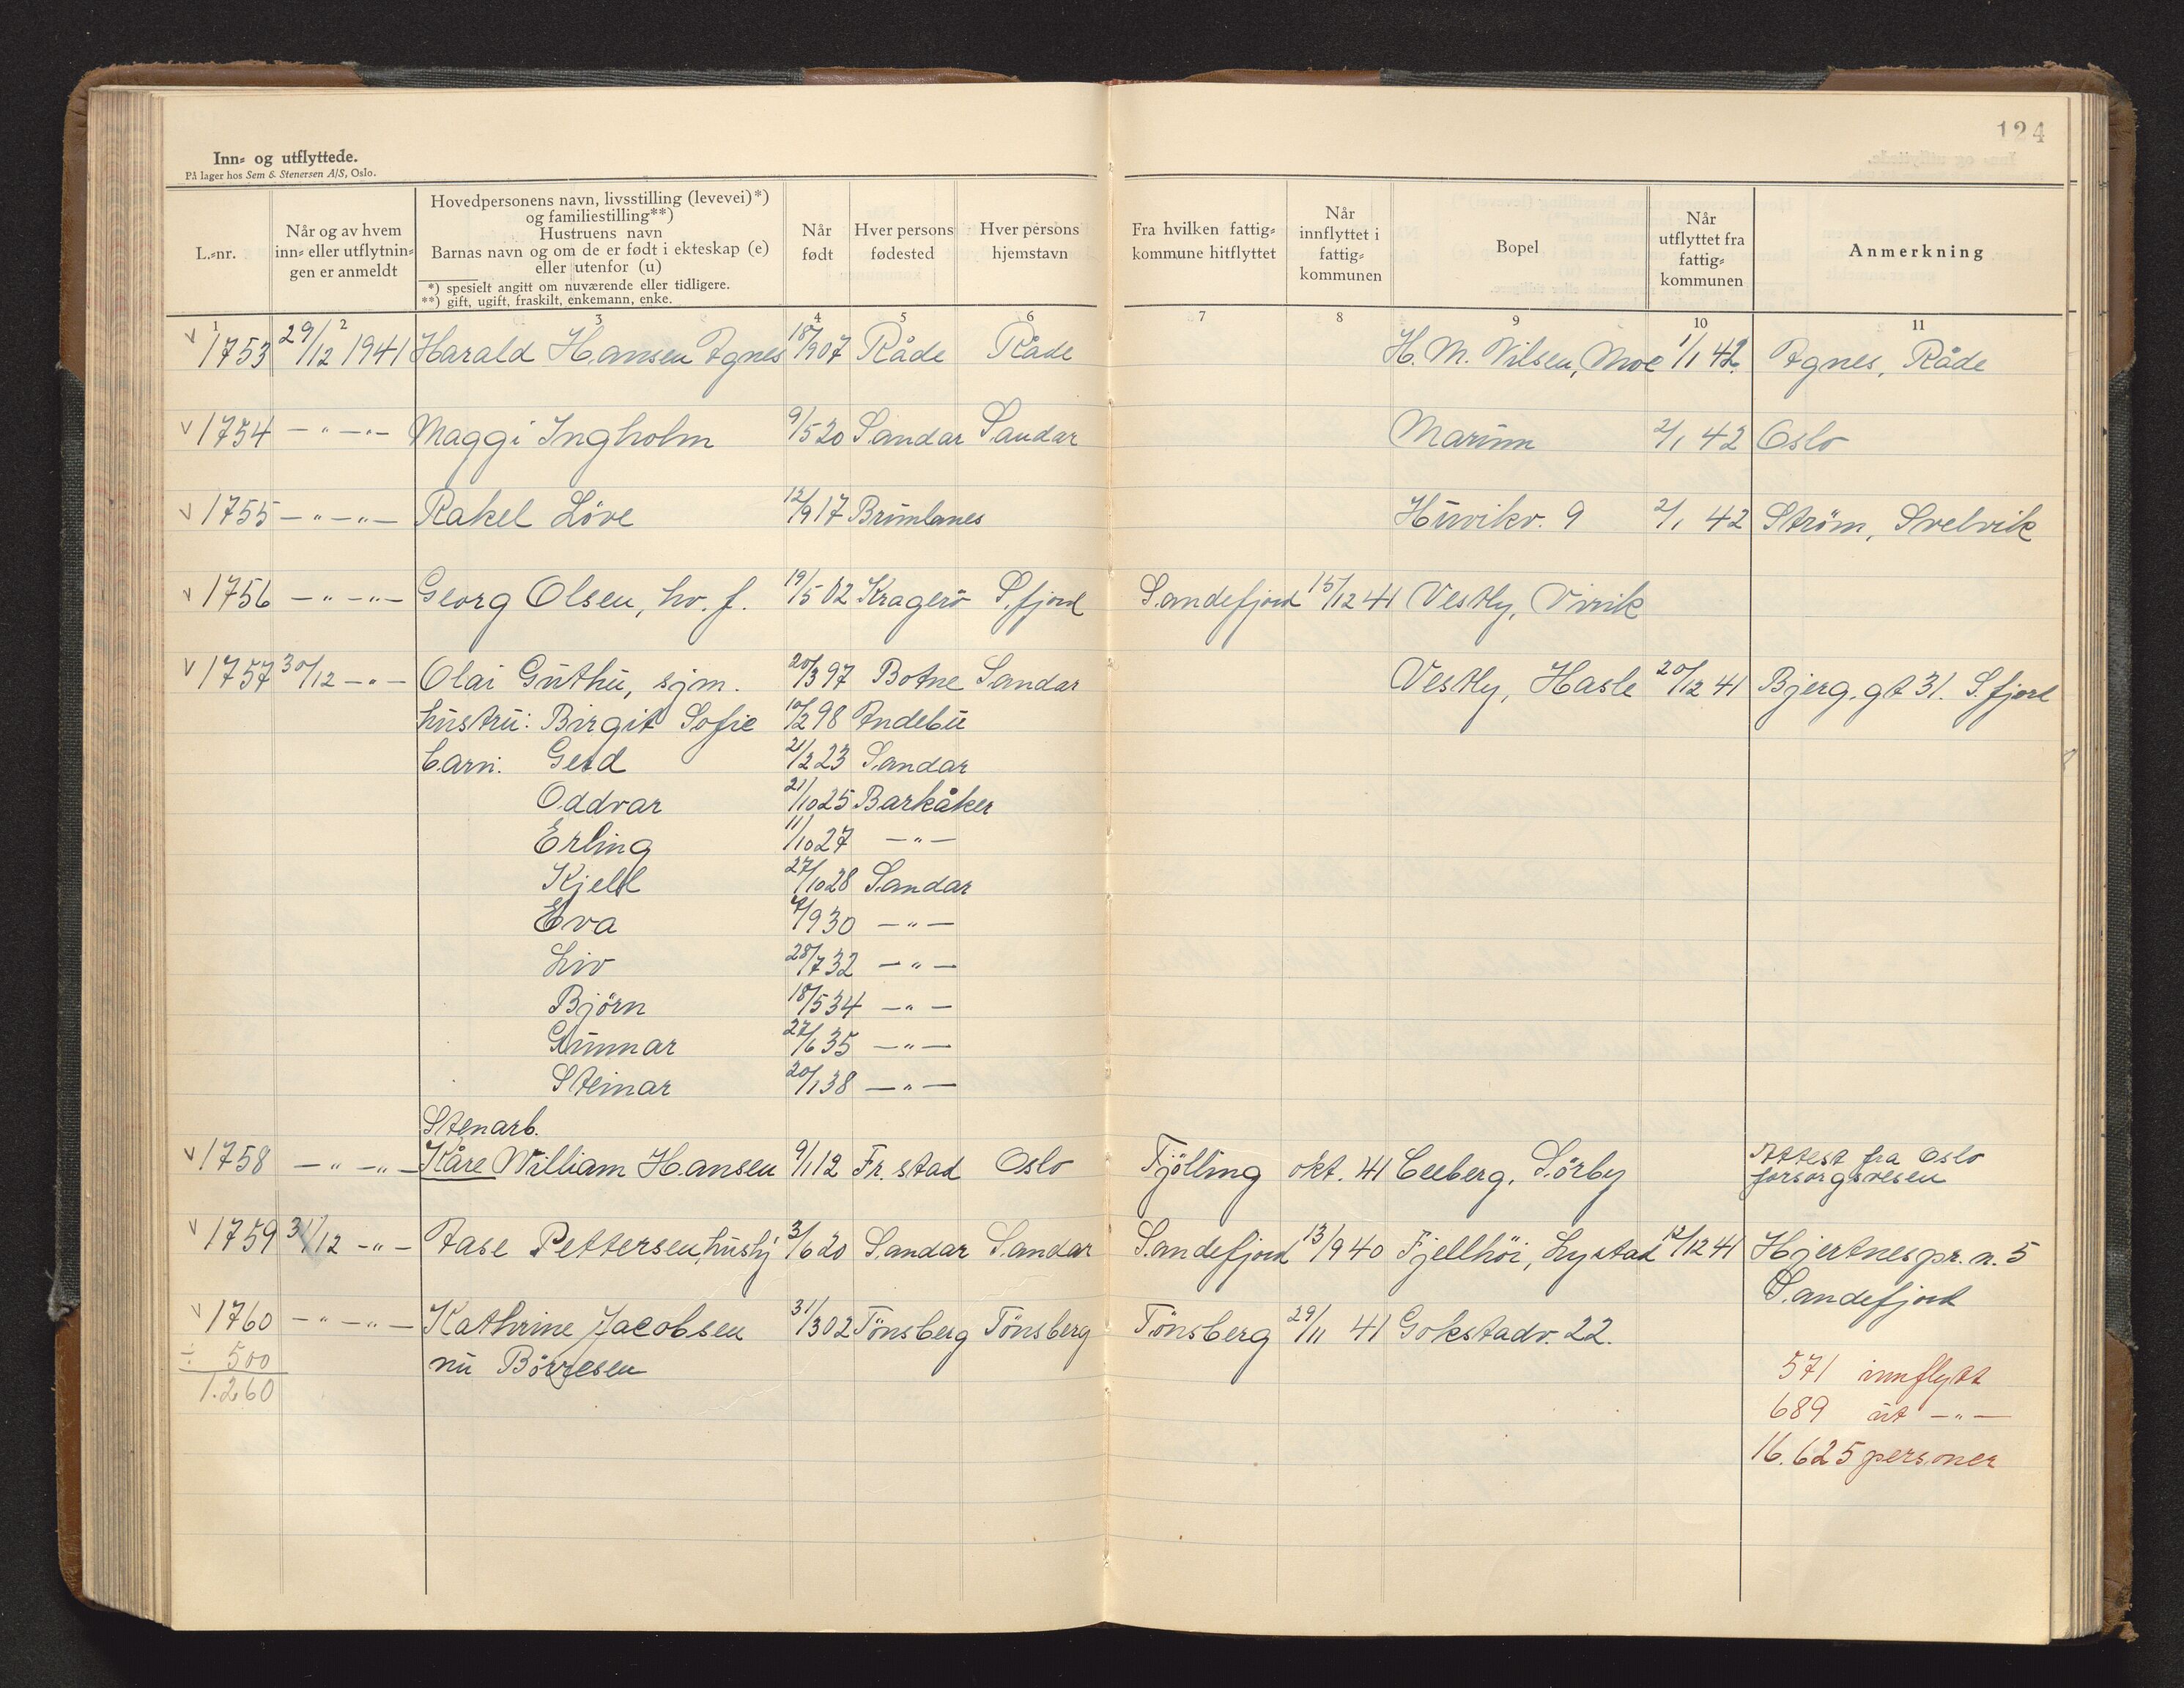 124
Inn- og utflyttede.
På lager hos Sem & Stenersen A/S, Oslo.
L.-nr.
Når og av hvem inn- eller utflytnin- gen er anmeldt
Hovedpersonens navn, livsstilling (levevei)*) og familiestilling**)
Hustruens navn
Barnas navn og om de er født i ekteskap (e) eller utenfor (u)
*) spesielt angitt om nuværende eller tidligere.
**) gift, ugift, fraskilt, enkemann, enke.
Når født
Hver persons fødested
Hver persons hjemstavn
Fra hvilken fattig- kommune hitflyttet
Når innflyttet i fattig- kommunen
Bopel
Når utflyttet fra fattig- kommunen
Anmerkning
1 2 3 4 5 6 7 8 9 10 11
v 1753 29/12 1941 Harald Hansen Agnes 18/907 Råde Råde H. M. Nilsen, Moe 1/1 42. Agnes, Råde
v 1754 -"- -"- Maggi Ingholm 9/5 20 Sandar Sandar Marum 2/1 42 Oslo
v 1755 -"- -"- Rakel Löve 12/9 17 Brunlanes Huvikv. 9 2/1 42 Ström, Svelvik
v 1756 -"- -"- Georg Olsen, hv. f. 19/5 02 Kragerö S.fjord Sandefjord 15/12 41 Vestly, Virik
v 1757 30/12 -"- Olai Guthu, sjm. 20/3 97 Botne Sandar Vestly, Hasle 20/12 41 Bjerg. gt 31. S.fjord
hustru: Birgit Sofie 10/2 98 Andebu
barn: Gerd 21/2 23 Sandar
Oddvar 21/10 25 Barkåker
Erling 11/10 27 -"-
Kjell 27/10 28 Sandar
Eva 4/9 30 -"-
Liv 28/7 32 -"-
Björn 18/5 34 -"-
Gunnar 27/6 35 -"-
Steinar 20/1 38 -"-
Stenarb.
v 1758 -"- -"- Kåre William Hansen 9/1 12 Fr.stad Oslo Tjölling okt. 41 Ceeberg, Sörby Attest fra Oslo
forsorgsvesen
v 1759 31/12 -"- Aase Pettersen, hushj 3/6 20 Sandar Sandar Sandefjord 13/9 40 Fjellhöi, Lystad 12/12 41 Hjertnespr. n. 5
Sandefjord
v 1760 -"- -"- Kathrine Jacobsen 31/3 02 Tönsberg Tönsberg Tönsberg 29/11 41 Gokstadv. 22.
÷ 500 nu Börresen
1.260
571 innflytt
689 ut -"-
16.625 personer